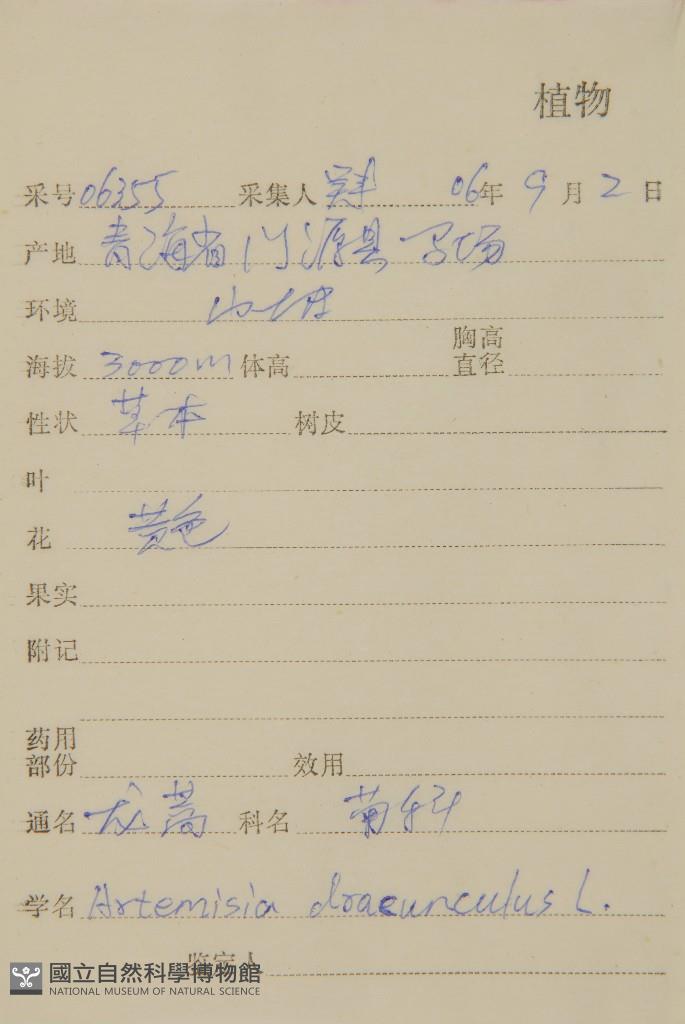 植物
采号 06355 采集人 06年 9月 2日
产地 青海省门源县马场
环境 山坡
海拔 3000m 体高 胸高直径
性状 草本 树皮
叶
花 黄色
果实
附记
药用部份 效用
通名 龙蒿 科名 菊科
学名 Artemisia dracunculus L.
监定人
國立自然科學博物館
NATIONAL MUSEUM OF NATURAL SCIENCE